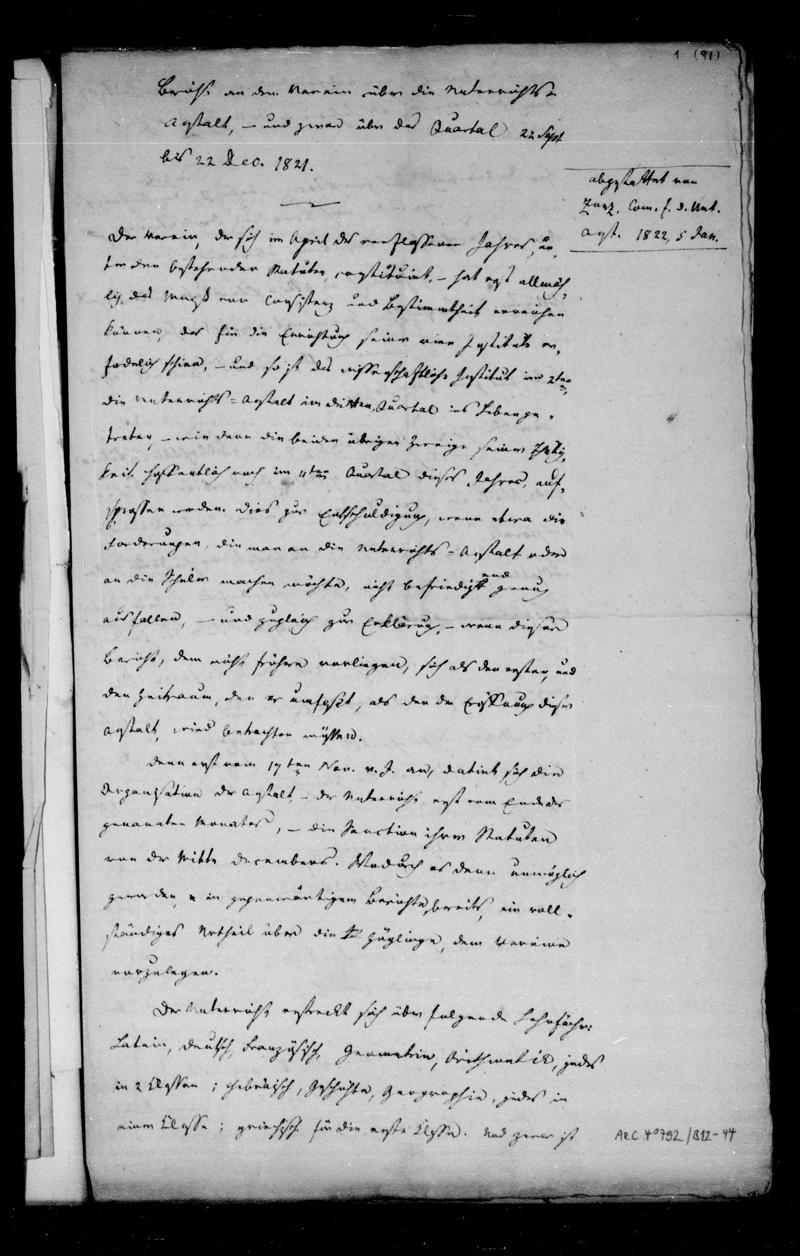 1 (91)
Bericht an den Verein über die Unterrichts-
Anstalt, – und zwar über das Quartal 22 Sept
bis 22 Dec. 1821.
abgestattet von
Zunz. Com. f. d. Unt.
Anst. 1822, 5 Jan.
Der Verein, der sich im April des verflossenen Jahres, un-
ter den bestehenden Statuten, constituirt, – hat erst allmäh-
lig das Maaß von Consistenz und Bestimmtheit erreichen
können, das für die Errichtung seiner vier Institute er-
forderlich schien, – und so ist das wissenschaftliche Institut im 2ten,
die Unterrichts-Anstalt im dritten Quartal ins Leben ge-
treten, – wie denn die beiden übrigen Zweige seiner Thätig-
keit hoffentlich noch im 4ten Quartal dieses Jahres, auf-
sprossen werden. Dies zur Entschuldigung, wenn etwa die
Forderungen, die man an die Unterrichts-Anstalt oder
an die Schüler machen möchte, nicht befriedigend genug
ausfallen, – und zugleich zur Erklärung, – wenn dieser
Bericht, dem nicht frühere vorliegen, sich als den ersten, und
den Zeitraum, den er umfaßt, als den der Eröffnung dieser
Anstalt, wird betrachten müssen.
Denn erst vom 17ten Nov. v. J. an, datirt sich die
Organisation der Anstalt – der Unterricht erst vom Ende des
genannten Monates, – die Sanction ihrer Statuten
von der Mitte Decembers. Wodurch es denn unmöglich
geworden, in gegenwärtigem Berichte, bereits, ein voll-
ständiges Urtheil über die Zöglinge, dem Vereine
vorzulegen.
Der Unterricht erstreckt sich über folgende Lehrfächer:
Latein, Deutsch, Französisch, Geometrie, Arithmetik, jedes
in 2 Classen; Hebräisch, Geschichte, Geographie, jedes in
einer Classe; griechisch für die erste Classe. Und zwar ist
ARC 4° 792/B12-44